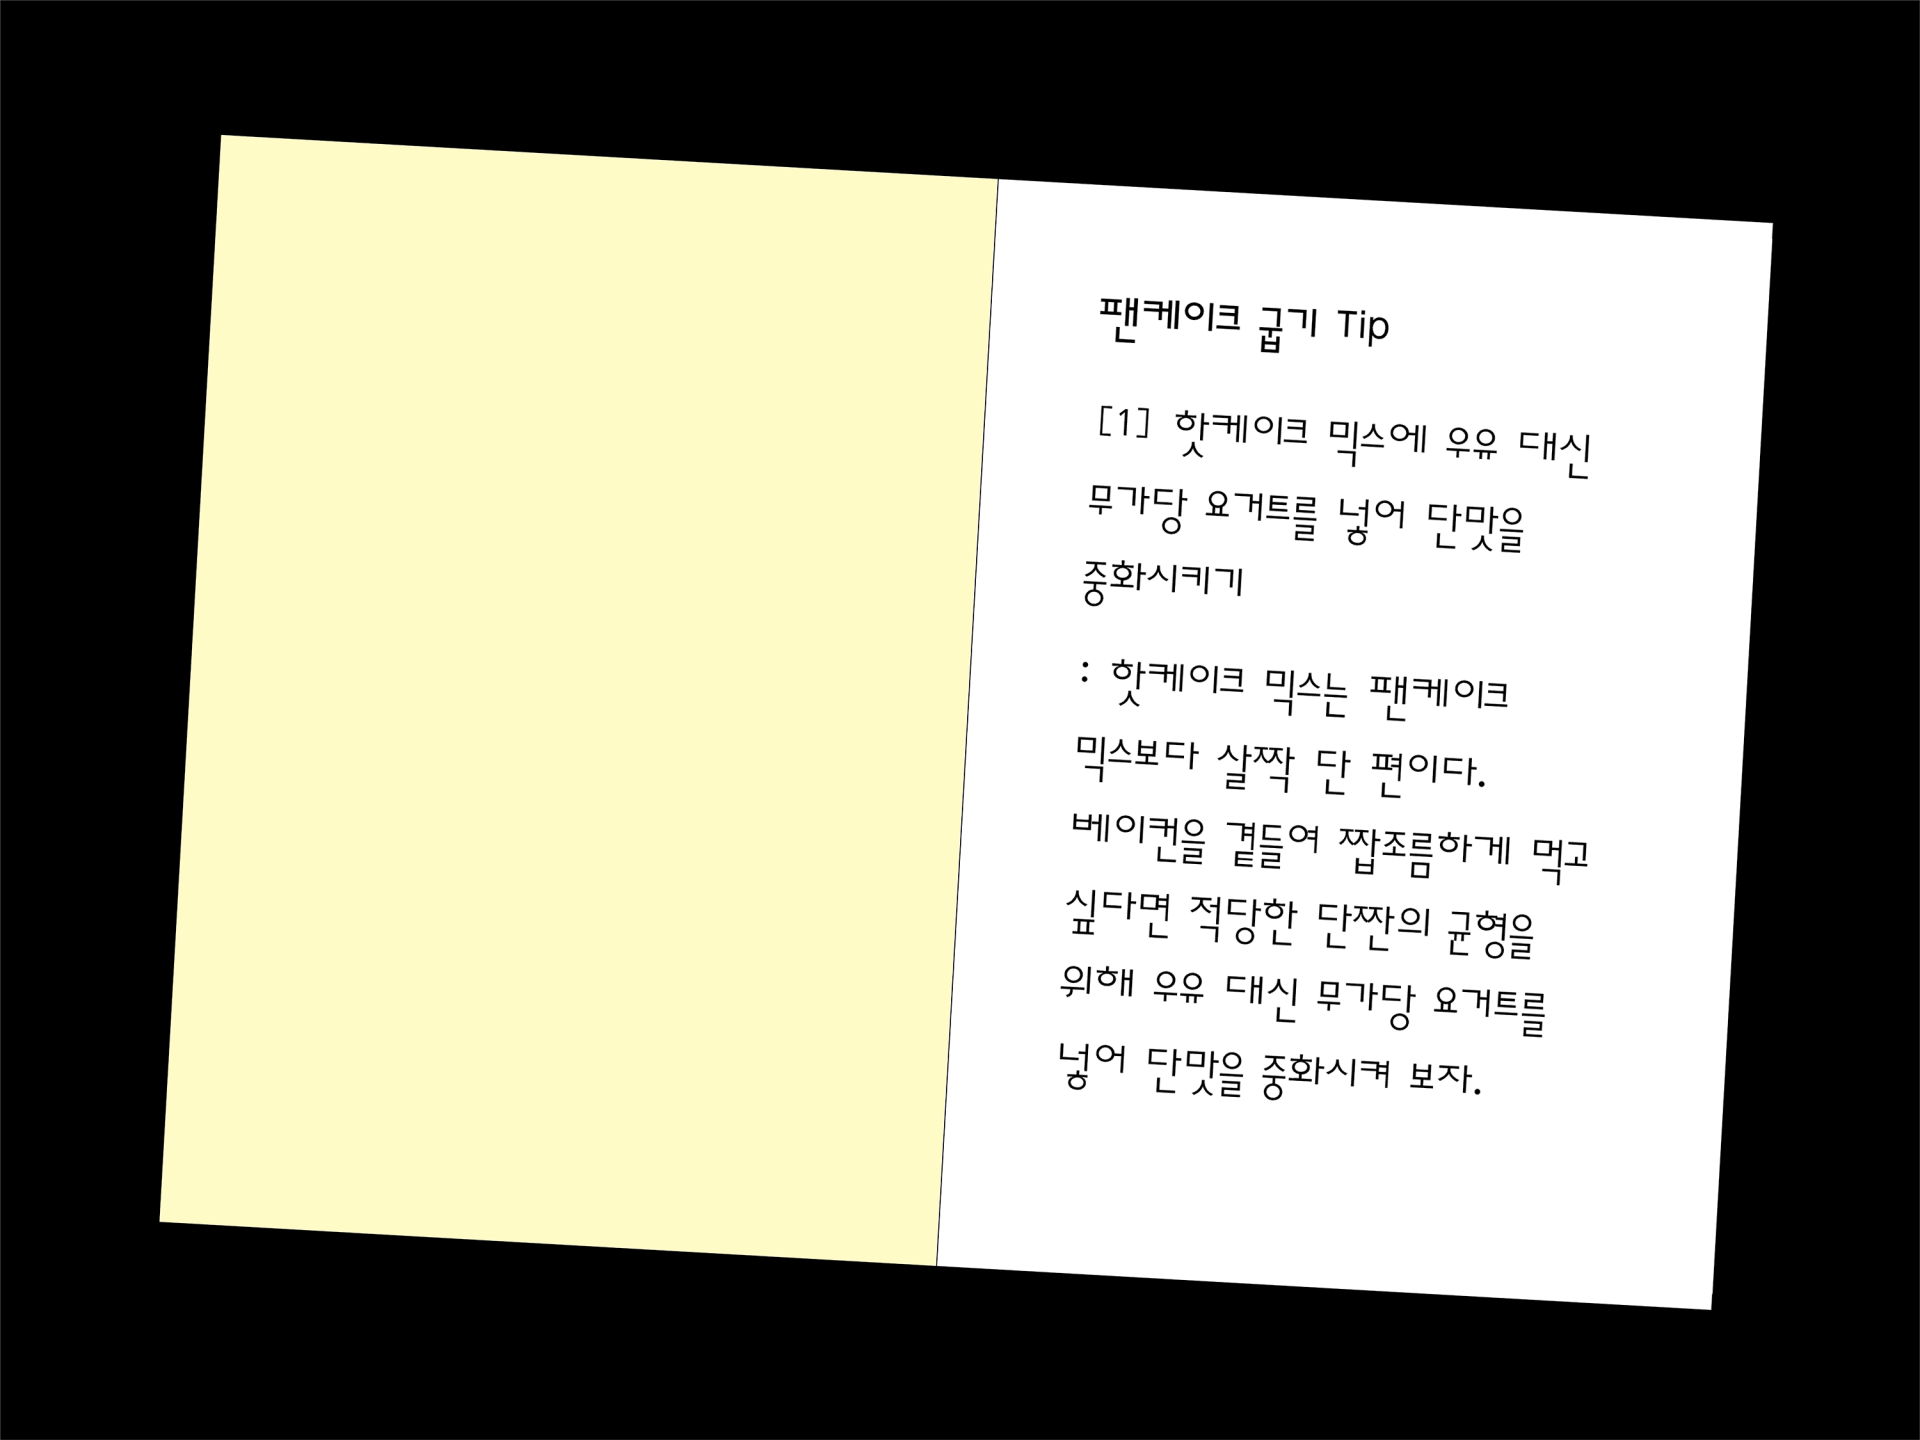 팬케이크 굽기 Tip
[1] 핫케이크 믹스에 우유 대신
무가당 요거트를 넣어 단맛을
중화시키기
: 핫케이크 믹스는 팬케이크
믹스보다 살짝 단 편이다.
베이컨을 곁들여 짭조름하게 먹고
싶다면 적당한 단짠의 균형을
위해 우유 대신 무가당 요거트를
넣어 단맛을 중화시켜 보자.